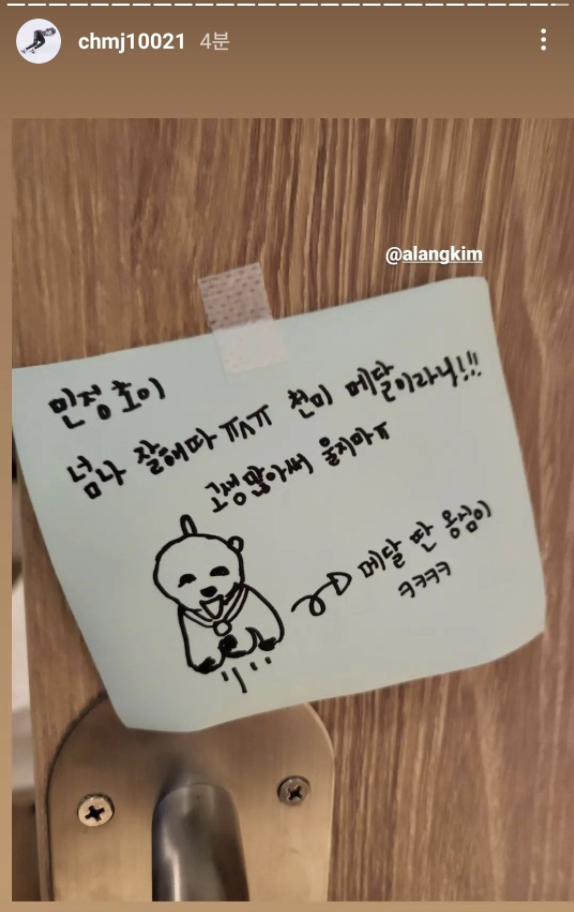 chmj10021 4분
@alangkim
민정호이
넘나 잘해따 ㅠㅅㅠ 첫미 메달이라니!!!
고생많아써 울지마ㅠ
메달 딴 옹심이
ㅋㅋㅋㅋ